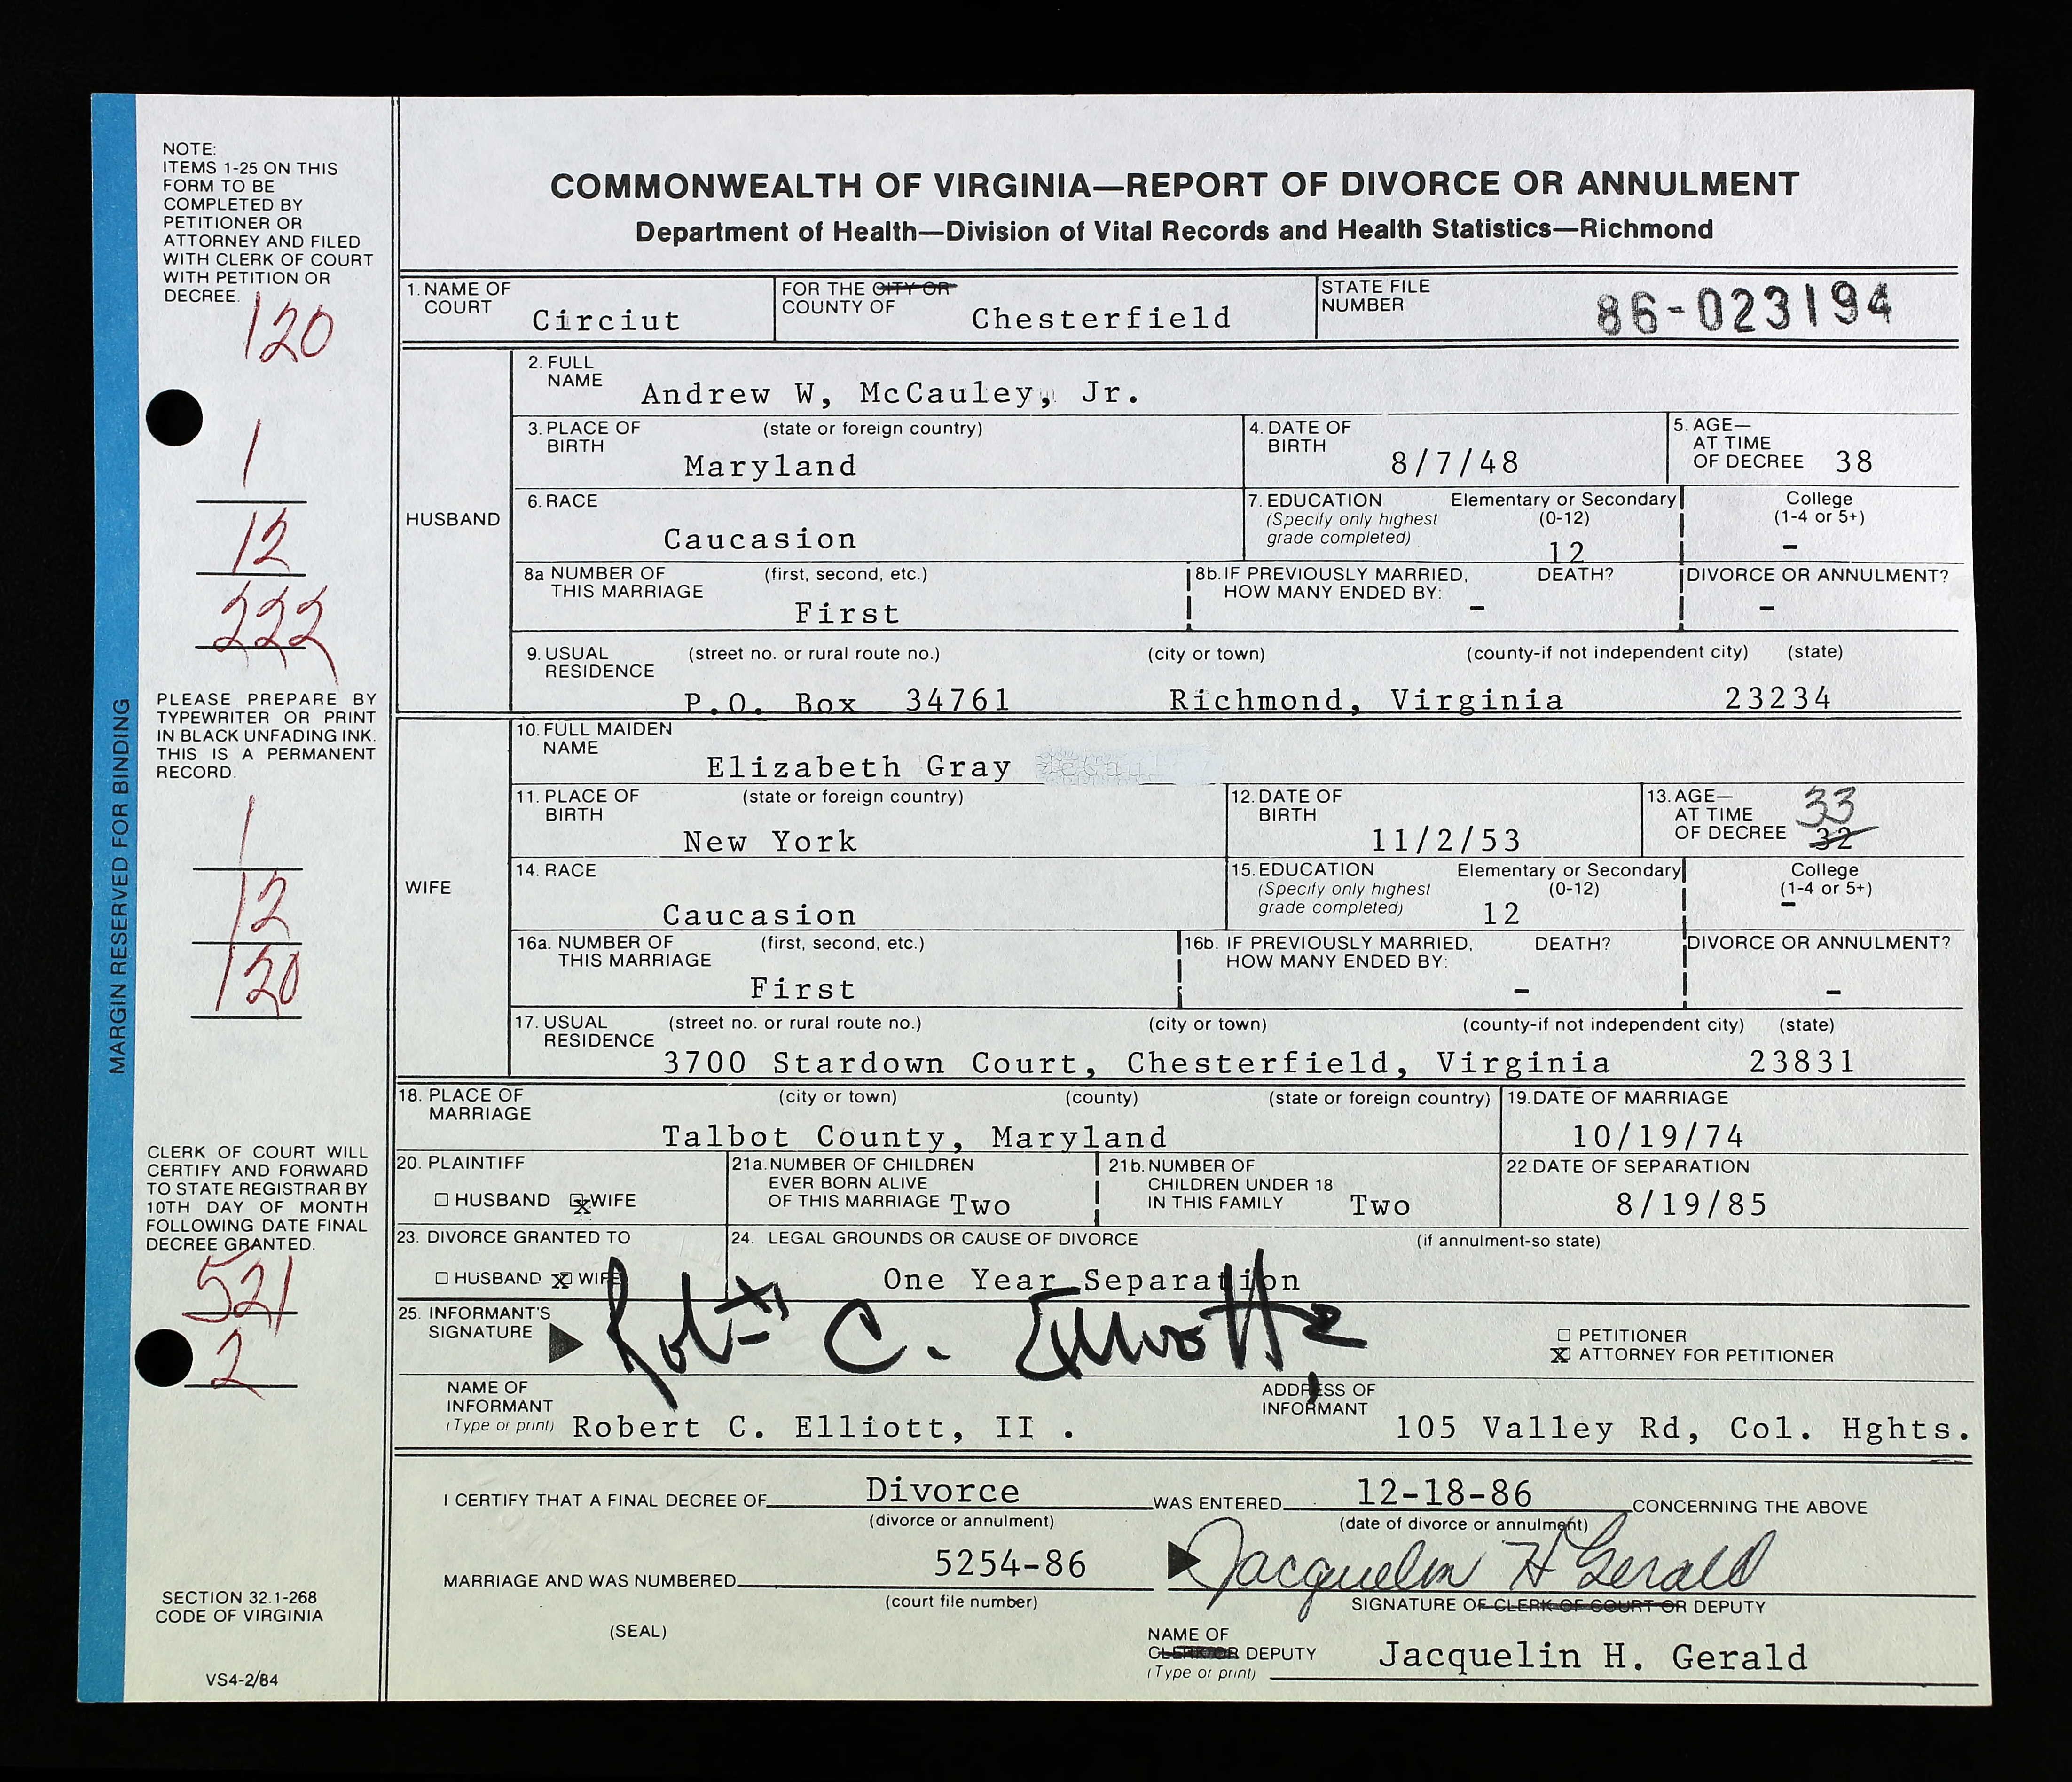 NOTE:
ITEMS 1-25 ON THIS
FORM TO BE
COMPLETED BY
PETITIONER OR
ATTORNEY AND FILED
WITH CLERK OF COURT
WITH PETITION OR
DECREE.
120
1
12
222
PLEASE PREPARE BY
TYPEWRITER OR PRINT
IN BLACK UNFADING INK.
THIS IS A PERMANENT
RECORD.
1
12
120
CLERK OF COURT WILL
CERTIFY AND FORWARD
TO STATE REGISTRAR BY
10TH DAY OF MONTH
FOLLOWING DATE FINAL
DECREE GRANTED.
521
2
SECTION 32.1-268
CODE OF VIRGINIA
VS4-2/84
MARGIN RESERVED FOR BINDING
COMMONWEALTH OF VIRGINIA—REPORT OF DIVORCE OR ANNULMENT
Department of Health—Division of Vital Records and Health Statistics—Richmond
1. NAME OF COURT Circiut
FOR THE CITY OR COUNTY OF Chesterfield
STATE FILE NUMBER 86-023194
HUSBAND
2. FULL NAME Andrew W, McCauley, Jr.
3. PLACE OF BIRTH (state or foreign country) Maryland
4. DATE OF BIRTH 8/7/48
5. AGE— AT TIME OF DECREE 38
6. RACE Caucasion
7. EDUCATION (Specify only highest grade completed) Elementary or Secondary (0-12) 12
College (1-4 or 5+) -
8a NUMBER OF THIS MARRIAGE (first, second, etc.) First
8b. IF PREVIOUSLY MARRIED, HOW MANY ENDED BY: DEATH? -
DIVORCE OR ANNULMENT? -
9. USUAL RESIDENCE (street no. or rural route no.) (city or town) (county-if not independent city) (state)
P.O. Box 34761 Richmond, Virginia 23234
WIFE
10. FULL MAIDEN NAME Elizabeth Gray
11. PLACE OF BIRTH (state or foreign country) New York
12. DATE OF BIRTH 11/2/53
13. AGE— AT TIME OF DECREE 33 32
14. RACE Caucasion
15. EDUCATION (Specify only highest grade completed) Elementary or Secondary (0-12) 12
College (1-4 or 5+) -
16a. NUMBER OF THIS MARRIAGE (first, second, etc.) First
16b. IF PREVIOUSLY MARRIED, HOW MANY ENDED BY: DEATH? -
DIVORCE OR ANNULMENT? -
17. USUAL RESIDENCE (street no. or rural route no.) (city or town) (county-if not independent city) (state)
3700 Stardown Court, Chesterfield, Virginia 23831
18. PLACE OF MARRIAGE (city or town) (county) (state or foreign country)
Talbot County, Maryland
19. DATE OF MARRIAGE 10/19/74
20. PLAINTIFF
☐ HUSBAND ☒ WIFE
21a. NUMBER OF CHILDREN EVER BORN ALIVE OF THIS MARRIAGE Two
21b. NUMBER OF CHILDREN UNDER 18 IN THIS FAMILY Two
22. DATE OF SEPARATION 8/19/85
23. DIVORCE GRANTED TO
☐ HUSBAND ☒ WIFE
24. LEGAL GROUNDS OR CAUSE OF DIVORCE (if annulment-so state)
One Year Separation
25. INFORMANT'S SIGNATURE Robert C. Elliott 2
☐ PETITIONER
☒ ATTORNEY FOR PETITIONER
NAME OF INFORMANT (Type or print) Robert C. Elliott, II .
ADDRESS OF INFORMANT 105 Valley Rd, Col. Hghts.
I CERTIFY THAT A FINAL DECREE OF Divorce WAS ENTERED 12-18-86 CONCERNING THE ABOVE
(divorce or annulment) (date of divorce or annulment)
MARRIAGE AND WAS NUMBERED 5254-86
(court file number)
Jacquelin H Gerald
SIGNATURE OF CLERK OF COURT OR DEPUTY
(SEAL)
NAME OF CLERK OR DEPUTY (Type or print) Jacquelin H. Gerald